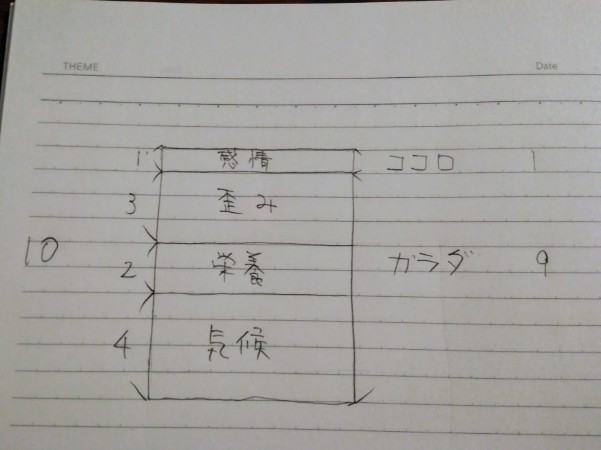 THEME Date
1 感情 ココロ 1
3 歪み
10 2 栄養 カラダ 9
4 気候